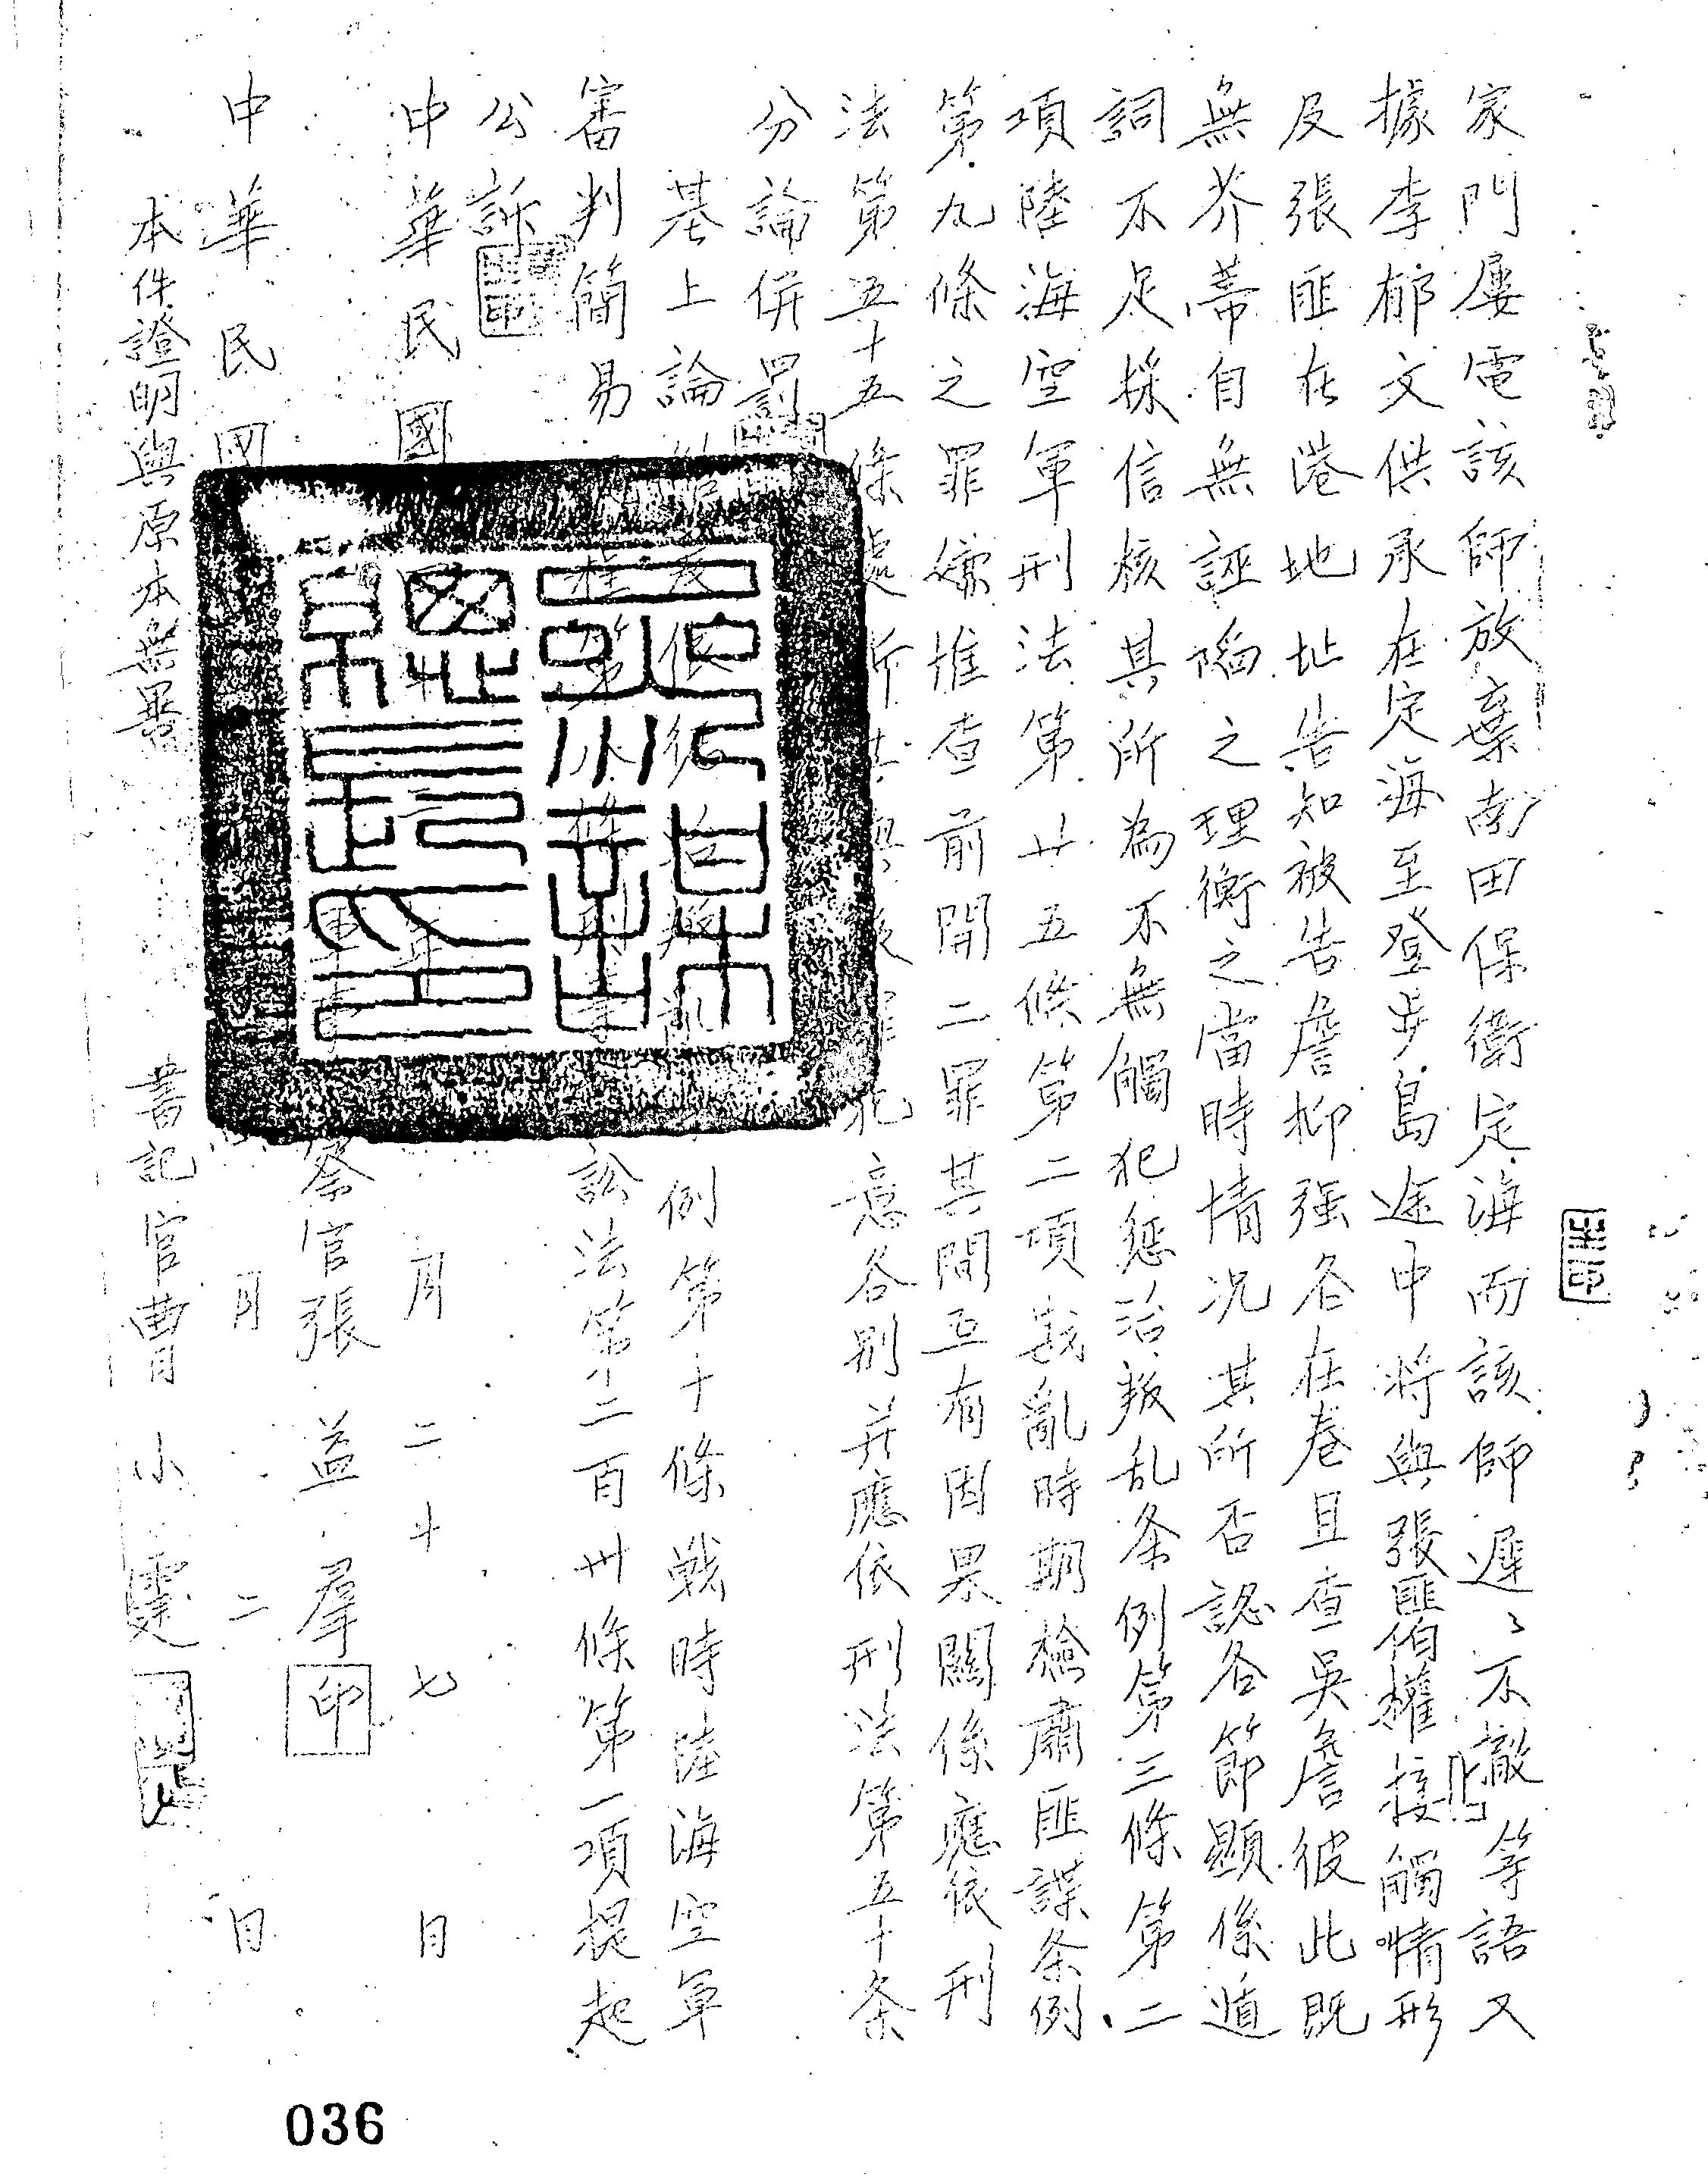 家門屢電該師放棄南田保衛定海而該師遲遲不撤等語又
據李郁文供承在定海至登步島途中將與張匪伯權接觸情形
及張匪在港地址告知被告詹抑强各在卷且查吳詹彼此既
無芥蒂自無誣陷之理衡之當時情况其所否認各節顯係遁
詞不足採信核其所為不無觸犯惩治叛乱条例第三條第二
項陸海空軍刑法第廿五條第二項戡亂時期檢肅匪諜条例
第九條之罪嫌惟查前開二罪其間互有因果關係應依刑
法第五十五條處 犯意各別并應依刑法第五十条
分論併罰
基上論 依 例第十條戦時陸海空軍
審判簡易 訟法第二百卅條第一項提起
公訴
中華民國 年 月二十七日
察官張益羣 印
中華民國 月二日
本件證明與原本無異 書記官曹小
036